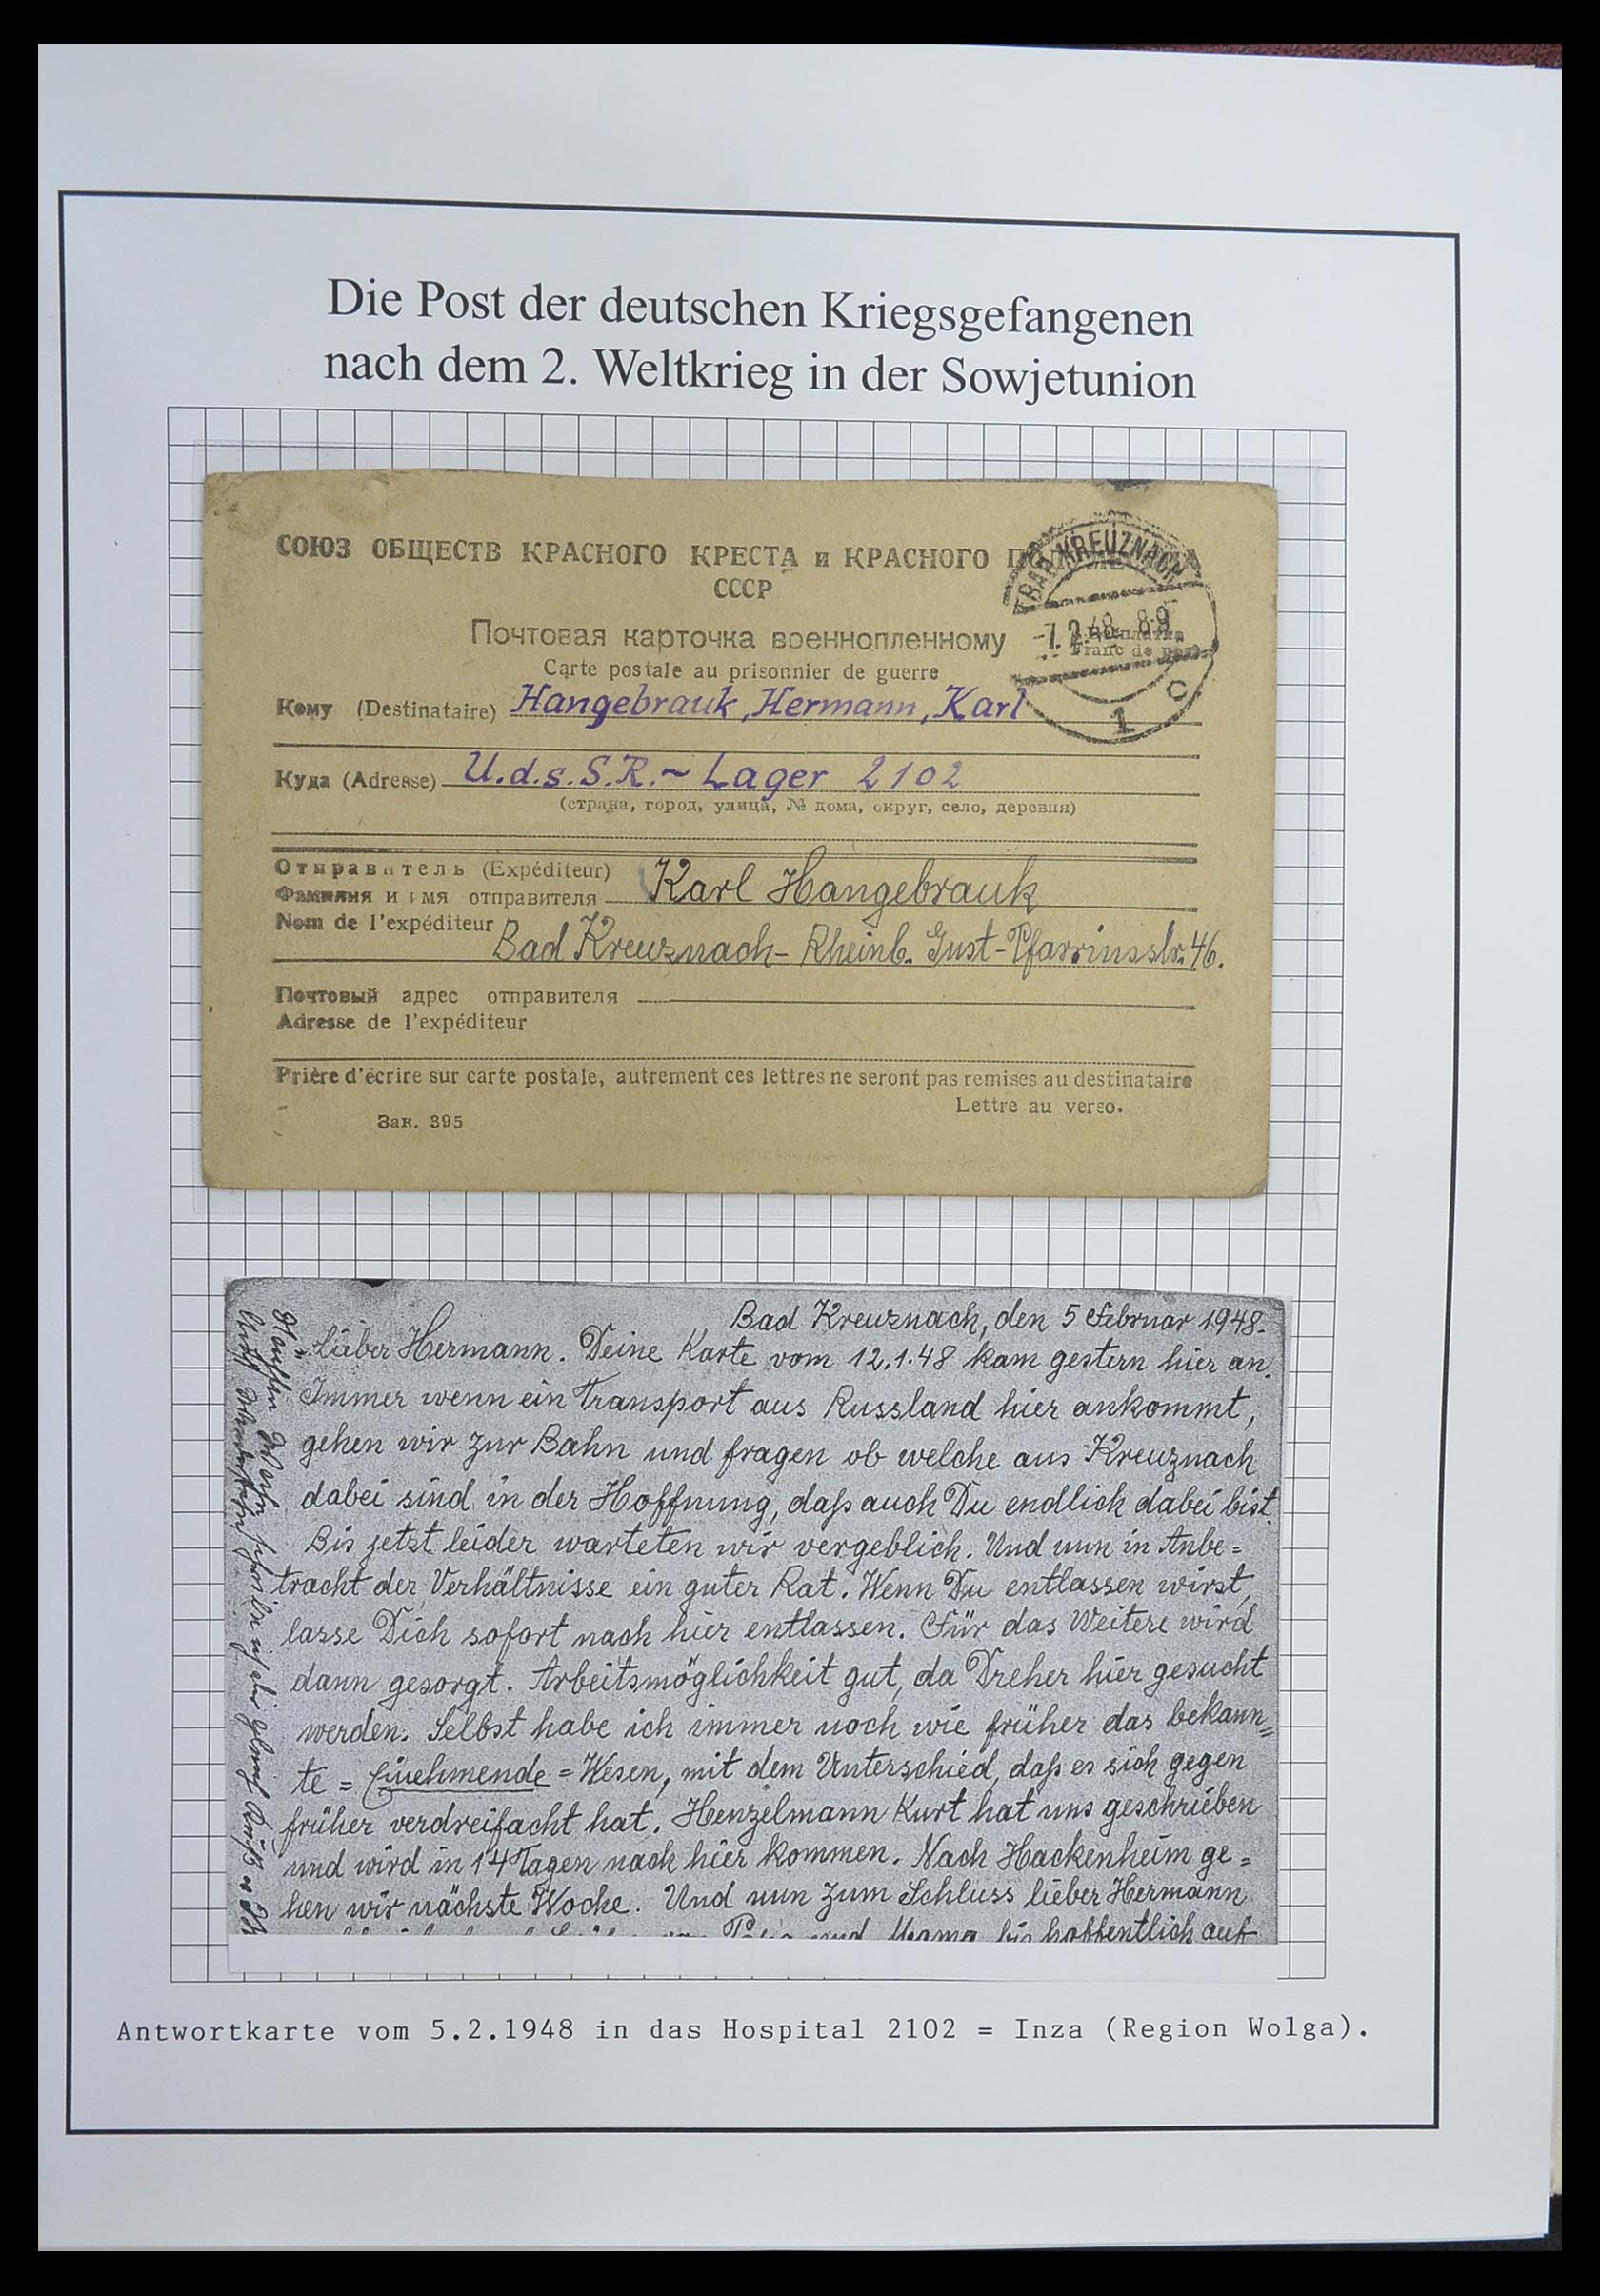 Die Post der deutschen Kriegsgefangenen
nach dem 2. Weltkrieg in der Sowjetunion
СОЮЗ ОБЩЕСТВ КРАСНОГО КРЕСТА и КРАСНОГО
СССР
BAD KREUZNACH
-7.2.48. 8-9
1 c
Почтовая карточка военнопленному
Franc de port
Carte postale au prisonnier de guerre
Кому (Destinataire) Hangebrauk, Hermann, Karl
Куда (Adresse) U.d.s.S.R. ~ Lager 2102
(страна, город, улица, № дома, округ, село, деревня)
Отправитель (Expéditeur)
Фамилия и имя отправителя Karl Hangebrauk
Nom de l'expéditeur Bad Kreuznach - Rheinl. Gust-Pfarriusstr. 46.
Почтовый адрес отправителя
Adresse de l'expéditeur
Prière d'écrire sur carte postale, autrement ces lettres ne seront pas remises au destinataire
Lettre au verso.
Зак. 395
Bad Kreuznach, den 5 Februar 1948.
Lieber Hermann. Deine Karte vom 12.1.48 kam gestern hier an.
Immer wenn ein Transport aus Russland hier ankommt,
gehen wir zur Bahn und fragen ob welche aus Kreuznach
dabei sind in der Hoffnung, daß auch Du endlich dabei bist.
Bis jetzt leider warteten wir vergeblich. Und nun in Anbe=
tracht der Verhältnisse ein guter Rat. Wenn Du entlassen wirst,
lasse Dich sofort nach hier entlassen. Für das Weitere wird
dann gesorgt. Arbeitsmöglichkeit gut, da Dreher hier gesucht
werden. Selbst habe ich immer noch wie früher das bekann=
te = Einehmende = Wesen, mit dem Unterschied, daß es sich gegen
früher verdreifacht hat. Henzelmann Kurt hat uns geschrieben
und wird in 14 Tagen nach hier kommen. Nach Hackenheim ge=
hen wir nächste Woche. Und nun zum Schluss lieber Hermann
und Mama bis hoffentlich auf
Antwortkarte vom 5.2.1948 in das Hospital 2102 = Inza (Region Wolga).